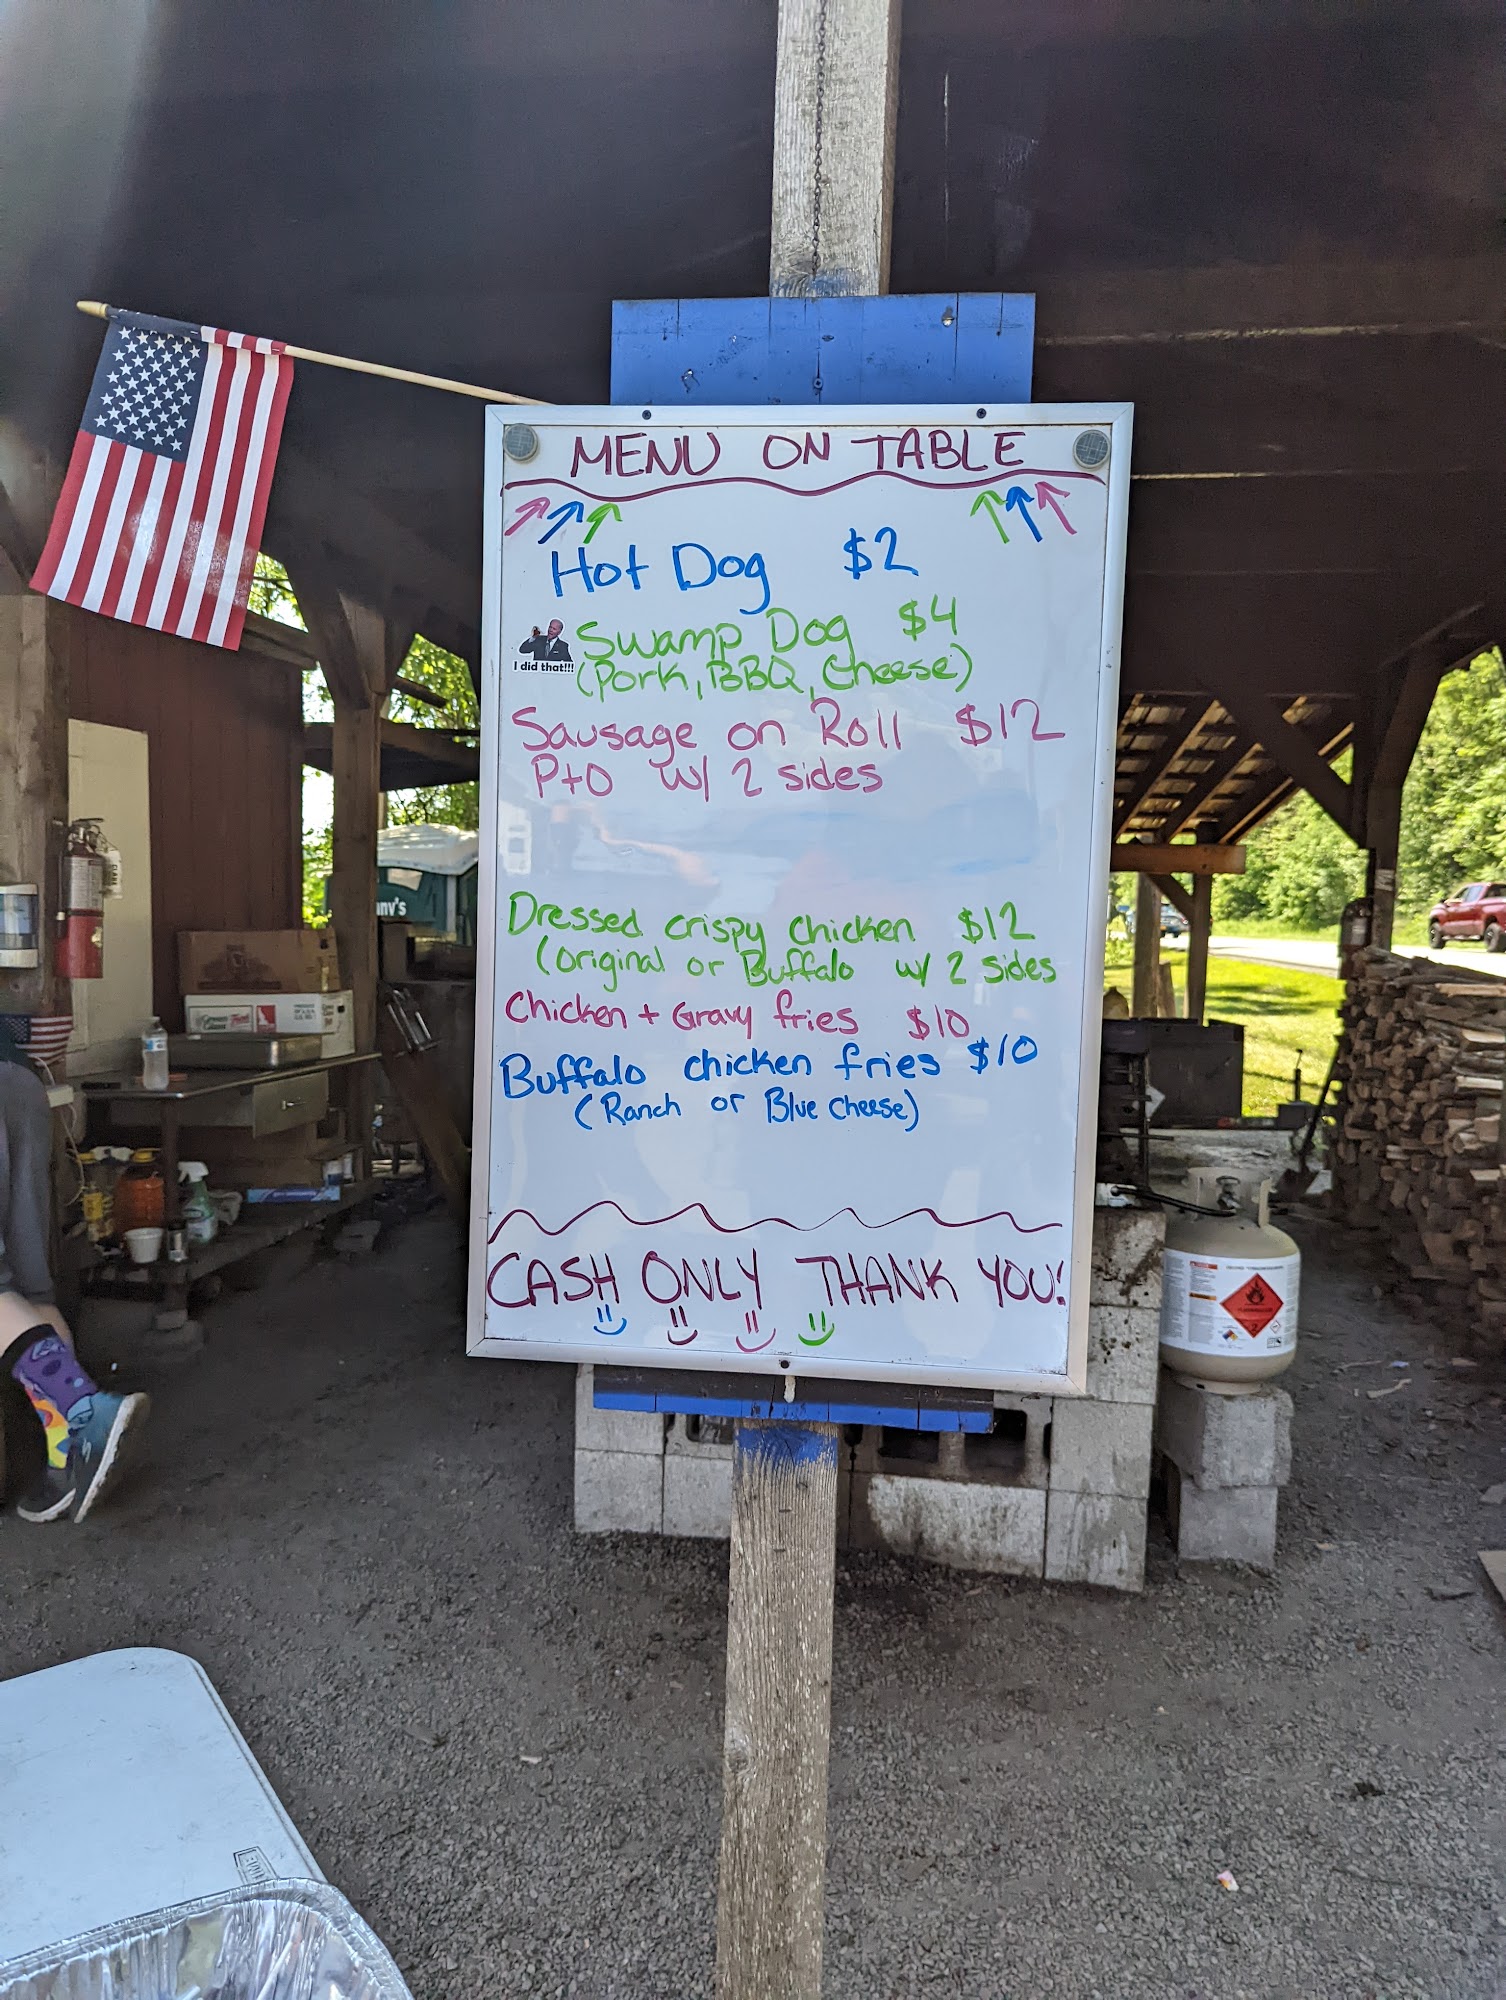 MENU ON TABLE
Hot Dog $2
Swamp Dog $4
I did that!!!
(Pork, BBQ, Cheese)
Sausage on Roll $12
P+O w/ 2 sides
Dressed crispy chicken $12
(original or Buffalo w/ 2 sides
Chicken + Gravy fries $10
Buffalo chicken fries $10
(Ranch or Blue Cheese)
CASH ONLY THANK YOU!